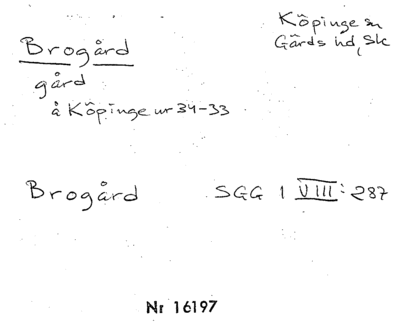 Köpinge sn
Gärds hd, Sk
Brogård
gård
å Köpinge nr 34-33
Brogård SGG 1 VIII: 287
Nr 16197